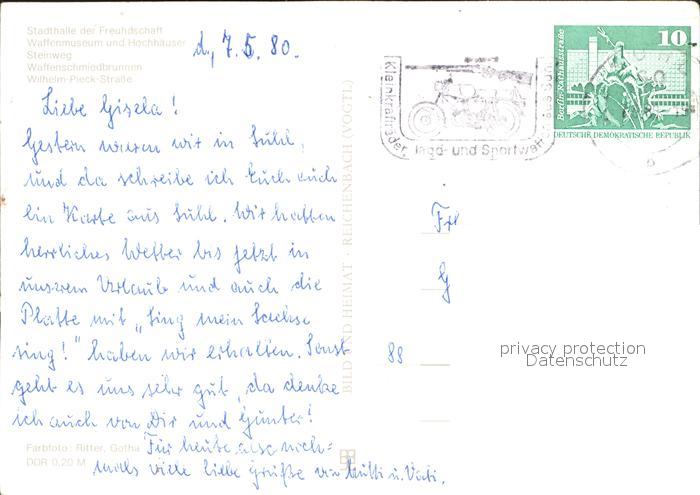 Stadthalle der Freundschaft
Waffenmuseum und Hochhäuser
Steinweg
Waffenschmiedbrunnen
Wilhelm-Pieck-Straße
d. 7. 5. 80.
Liebe Gisela!
Gestern waren wir in Suhl,
und da schreibe ich Euch auch
ein Karte aus Suhl. Wir hatten
herrliches Wetter bis jetzt in
unserem Urlaub und auch die
Platte mit „Sing mein Sachse
sing!" haben wir erhalten. Sonst
geht es uns sehr gut, da denke
ich auch von Dir und Günter!
Für heute also noch=
mals viele liebe Grüße von Mutti u. Vati.
Farbfoto: Ritter, Gotha
DDR 0,20 M
BILD UND HEIMAT · REICHENBACH (VOGTL)
Kleinkrafträder, Jagd- und Sportwaffen aus Suhl
10
Berlin-Rathausstraße
DEUTSCHE DEMOKRATISCHE REPUBLIK
Frl
G
88
privacy protection
Datenschutz